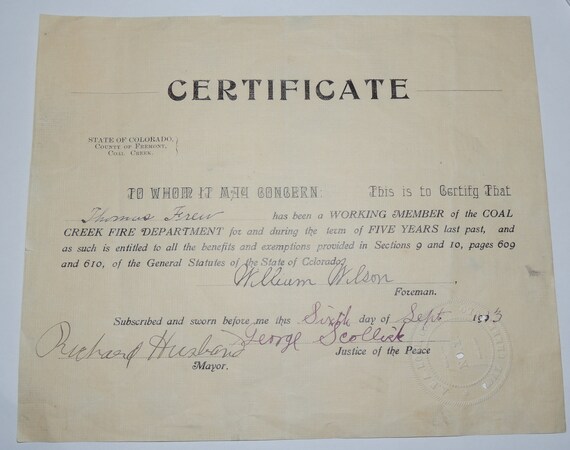 CERTIFICATE
STATE OF COLORADO,
COUNTY OF FREMONT,
COAL CREEK.
TO WHOM IT MAY CONCERN: This is to Certify That
Thomas Frew has been a WORKING MEMBER of the COAL
CREEK FIRE DEPARTMENT for and during the term of FIVE YEARS last past, and
as such is entitled to all the benefits and exemptions provided in Sections 9 and 10, pages 609
and 610, of the General Statutes of the State of Colorado.
William Wilson
Foreman.
Subscribed and sworn before me this Sixth day of Sept
Richard Husband George Scollick
Justice of the Peace
Mayor.